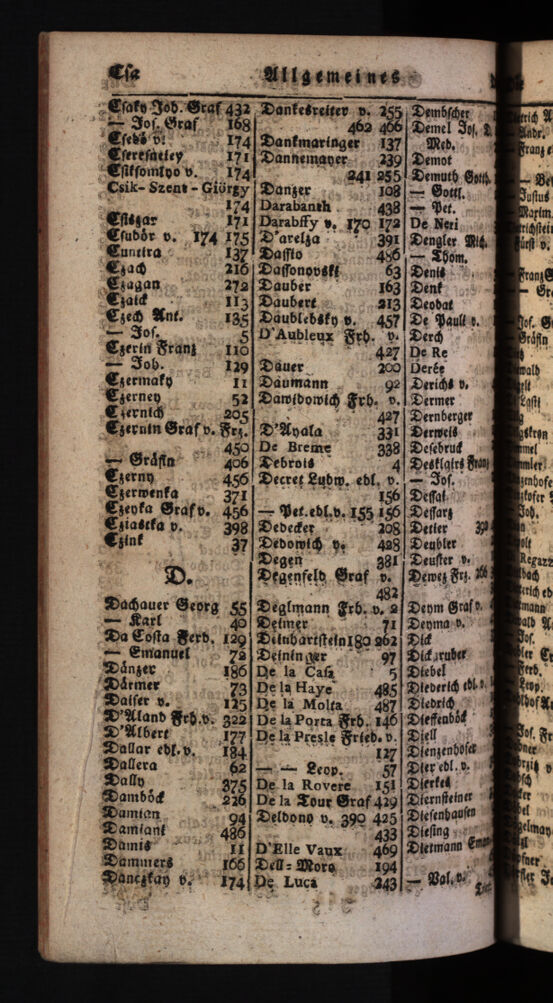 Csa Allgemeines
Csaky Joh. Graf 432
— Jos. Graf 168
Csebö v. 174
Cseresnetey 171
Csiksomlyo v. 174
Csik-Szent-Giörgy
174
Csiszar 171
Csudör v. 174 175
Cuneira 137
Czach 216
Czagan 272
Czaick 113
Czech Ant. 135
— Jos. 5
Czerin Franz 110
— Joh. 129
Czermaky 11
Czerney 52
Czernich 205
Czernin Graf v. Frz.
450
— Gräfin 406
Czerny 456
Czerwenka 371
Czeyka Graf v. 456
Cziastka v. 398
Czink 37
D.
Dachauer Georg 55
— Karl 40
Da Costa Ferd. 129
— Emanuel 72
Dänzer 186
Därmer 73
Daiser v. 125
D'Aland Frh. v. 322
D'Albert 177
Dallar edl. v. 184
Dallera 62
Dally 375
Damböck 226
Damian 94
Damiani 486
Damis 11
Dammers 166
Danczkay v. 174
Dankesreiter v. 255
462 466
Dankmaringer 137
Dannemayer 239
241 255
Danzer 108
Darabanth 438
Darabffy v. 170 172
D'arelza 391
Dassio 486
Dassonovski 63
Dauber 163
Daubert 213
Daublebsky v. 457
D'Aubleux Frh. v.
427
Dauer 200
Daumann 92
Dawidowich Frh. v.
427
D'Ayala 331
De Breme 338
Debrois 4
Decret Ludw. edl. v.
156
— Pet. edl. v. 155 156
Debecker 208
Dedowich v. 428
Degen 381
Degenfeld Graf v.
482
Deglmann Frh. v. 2
Deimer 71
Deinhartstein 180 262
Deininger 97
De la Casa 5
De la Haye 485
De la Motta 487
De la Porta Frh. 146
De la Presle Fried. v.
127
— — Leop. 57
De la Rovere 151
De la Tour Graf 429
Deldono v. 390 425
433
D'Elle Vaux 469
Dell-Moro 194
De Luca 243
Dembscher
Demel Jos. D.
Med.
Demot
Demuth Gotth.
— Gottl.
— Pet.
De Neri
Dengler Mich.
— Thom.
Denis
Denk
Deodat
De Pauli v.
Derch
De Re
Derée
Derichs v.
Dermer
Dernberger
Derweis
Desebruck
Desklairs Franz
— Jos.
Dessai
Dessarz
Detier
Deubler
Deuster v.
Dewez Frz. 266
Deym Graf v.
Deyma v.
Dick
Dickgruber
Diebel
Diederich edl. v.
Diedrich
Dieffenböck
Diell
Dienzenhofer
Dier edl. v.
Dierkes
Diernsteiner
Diesenhausen
Diesing
Dietmann Eman
— Val. v.